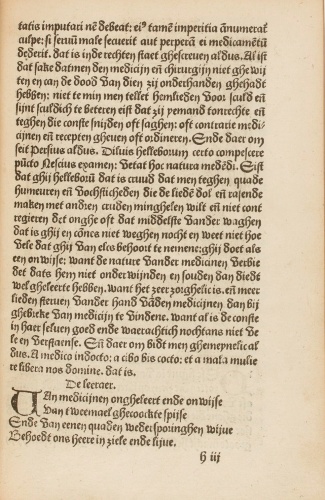 tatis imputari nē debeat: eiꝰ tamē imperitia ānumerat̃
culpe: si seruū male secuerit aut perperā ei medicamētū
dederit. dat is in de rechten staet ghescreuen aldus. Al ist
dat sake dat men den medicijn eñ chirurgijn niet ghewij
ten en can de dood van dien zij onderhanden ghehadt
hebben: niet te min men tellet hemlieden voor sculd eñ
sijnt sculdich te beteren eist dat zij yemand tonrechte eñ
teghen die conste snijden oft saghen: oft contrarie medi-
cijnen eñ recepten gheuen oft ordineren. Ende daer om
seit Persius aldus. Diluis helleborum certo compescere
pūcto Nescius examen: vetat hoc natura medēdi. Eist
dat ghij helleborū dat is cruud dat men teghen quade
humeuren eñ vochticheden die de liedē dol eñ rasende
maken met andren cruden minghelen wilt eñ niet cont
regieren det onghe oft dat middelste vander waghen
dat is ghij en cōnes niet weghen nocht en weet niet hoe
vele dat ghij van elcs behoort te nemene: ghij doet als
een onwijse: want de nature vander medicinen verbie
det dats hem niet onderwijnden en souden dan diedt
wel gheleerte hebben. want het zeer zorghelic is. eñ meer
lieden steruen vander hand vāden medicijnen dan bij
ghebreke van medicijn te vindene. want al is de conste
in haer seluen goed ende waerachtich nochtans niet ve
le en verstaense. Eñ daer om bidt men ghemeynelic al
dus. A medico indocto: a cibo bis cocto: et a mala mulie
re libera nos domine. dat is.
De leeraer.
VAn medicijnen ongheleert ende onwijse
Van tweemael ghecoockte spijse
Ende van eenen quaden wederspoinghen wijue
Behoedt ons heere in ziele ende lijue.
h iij